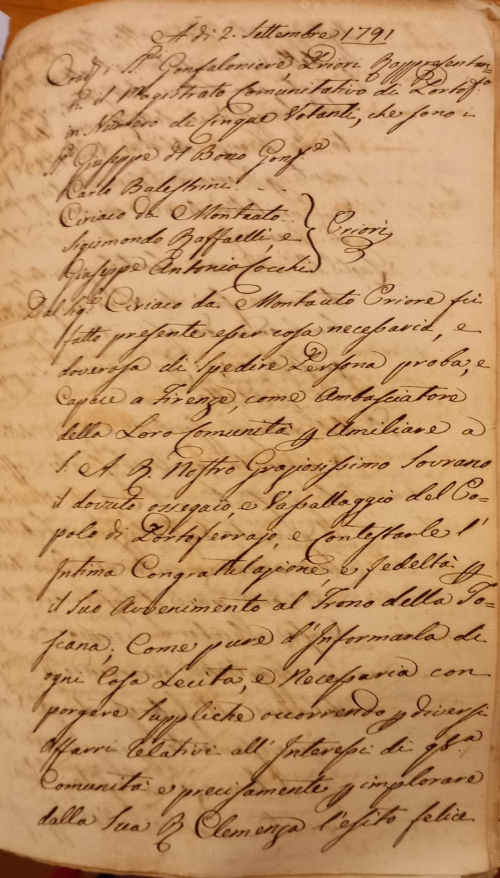 A di 2. Settembre 1791
Gonfaloniere, Priori Rappresentan=
ti il Magistrato Comunitativo di Portof.º
in Numero di Cinque Votanti, che sono i
Sri Giuseppe del Bono Gonf.e
Carlo Balestrini
Ciriaco da Montauto
Sigismondo Raffaelli, e
Giuseppe Antonio Cocchi
Priori
Dal Sig.e Ciriaco da Montauto Priore fu
fatto presente esser cosa necessaria, e
doverosa di Spedire Persona proba, e
Capace a Firenze, come Ambasciatore
della Loro Comunità p Umiliare a
S. A. R. Nostro Graziosissimo Sovrano
il dovuto ossequio, e Vassallaggio del Po=
polo di Portoferrajo, e Contestarle l'
Intima Congratulazione, e fedeltà p
il Suo Avvenimento al Trono della To=
scana; Come pure d'Informarla di
ogni Cosa Lecita, e Necessaria con
porgere Suppliche occorrendo p diversi
Affarri relativi all'Interessi di qs.a
Comunità e precisamente p implorare
dalla Sua R Clemenza l'esito felice